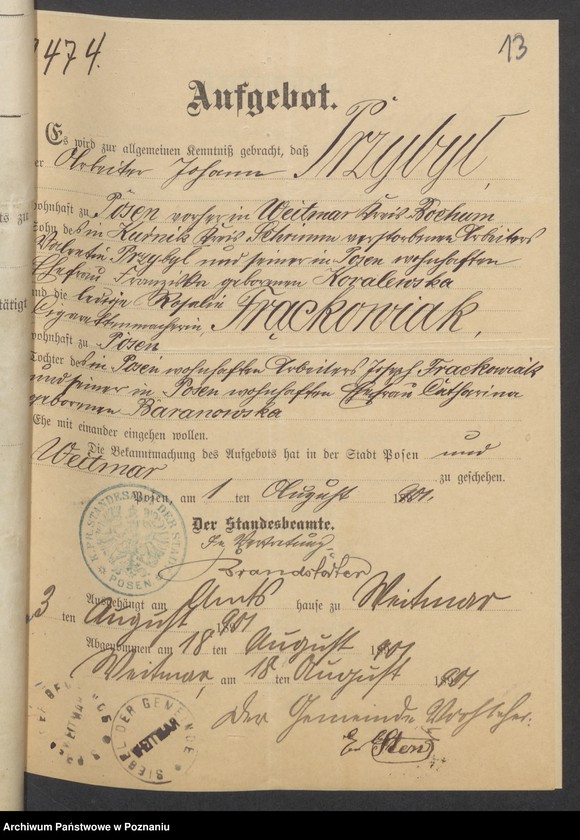 474.
13
Aufgebot.
Es wird zur allgemeinen Kenntniß gebracht, daß
er Arbeiter Johann Przybyl,
wohnhaft zu Posen vorher in Weitmar Kreis Bochum
Sohn des in Kurnik Kreis Schrimm verstorbenen Arbeiters
Valentin Przybyl und seiner in Posen wohnhaften
Ehefrau Franziska geborenen Kovalewska
und die ledige Rosalie
Cigarettenmacherin, Frąckowiak,
wohnhaft zu Posen
Tochter des in Posen wohnhaften Arbeiters Joseph Frąckowiak
und seiner in Posen wohnhaften Ehefrau Catharina
geborenen Baranowska
Ehe mit einander eingehen wollen.
Die Bekanntmachung des Aufgebots hat in der Stadt Posen und
Weitmar zu geschehen.
Posen, am 1 ten August 1901.
Der Standesbeamte.
In Vertretung
Brandstädter
K. PR. STANDESAMT DER STADT POSEN
Ausgehängt am Amts hause zu Weitmar
3 ten August 1901
Abgenommen am 18 ten August 1901
Weitmar, am 18 ten August 1901
Der Gemeinde Vorsteher.
SIEGEL DER GEMEINDE
WEITMAR
Archiwum Państwowe w Poznaniu